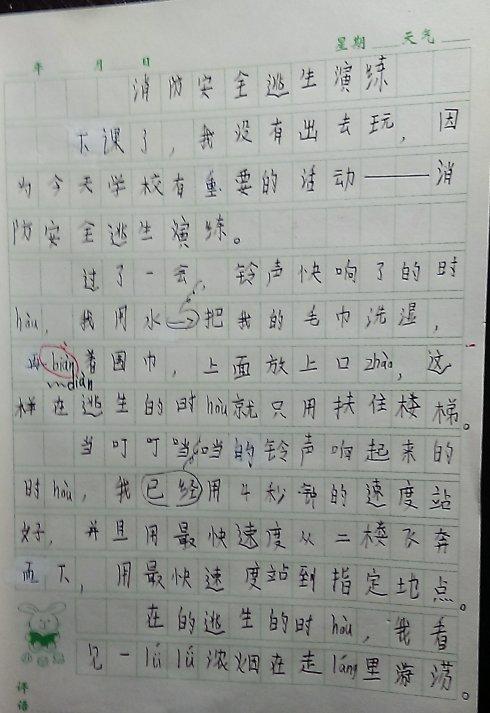 星期 天气
年 月 日
消防安全逃生演练
下课了，我没有出去玩，因
为今天学校有重要的活动——消
防安全逃生演练。
过了一会，铃声快响了的时
hòu，我用水把我的毛巾洗湿，
biàn着围巾，上面放上口zhào，这
diàn
样在逃生的时hòu就只用扶住楼梯。
当叮叮当当的铃声响起来的
时hòu，我已经用4秒钟的速度站
好，并且用最快速度从二楼飞奔
而下，用最快速度站到指定地点。
在的逃生的时hòu，我看
见一lǚ lǚ浓烟在走láng里游荡。
评语